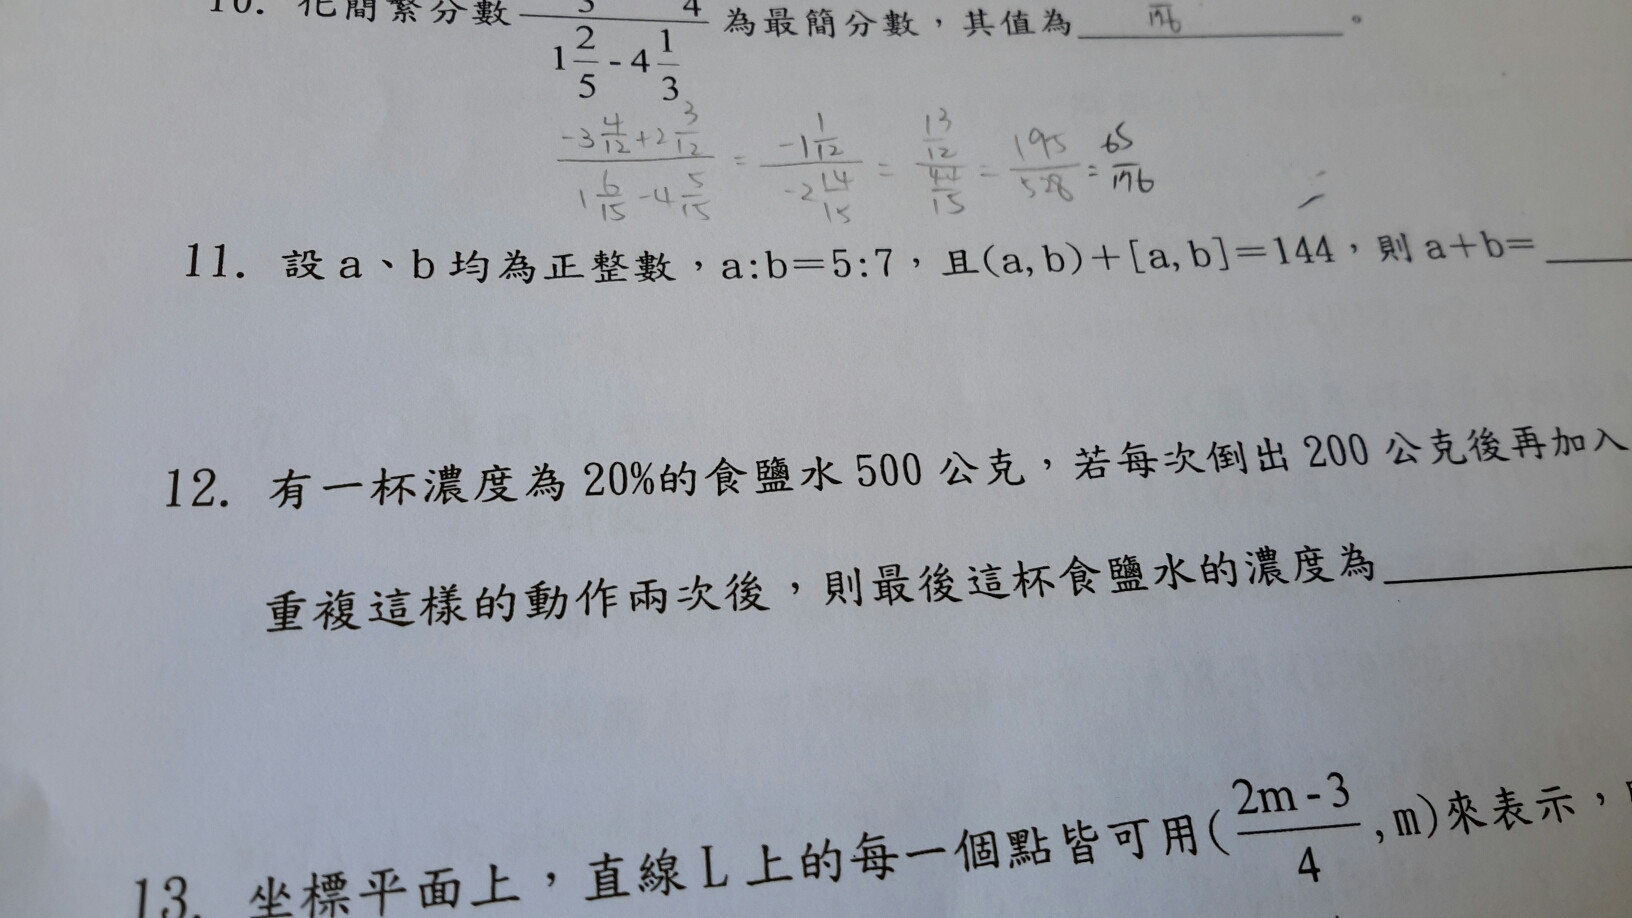 10. 化簡繁分數 為最簡分數,其值為 65/176 。
1 2/5 - 4 1/3
(-3 4/12 + 2 3/12)/(1 6/15 - 4 5/15) = (-1 1/12)/(-2 14/15) = (13/12)/(44/15) = 195/528 = 65/176
11. 設 a、b 均為正整數,a:b=5:7,且(a,b)+[a,b]=144,則 a+b=
12. 有一杯濃度為 20%的食鹽水 500 公克,若每次倒出 200 公克後再加入
重複這樣的動作兩次後,則最後這杯食鹽水的濃度為
13. 坐標平面上,直線 L 上的每一個點皆可用( (2m-3)/4 ,m)來表示,